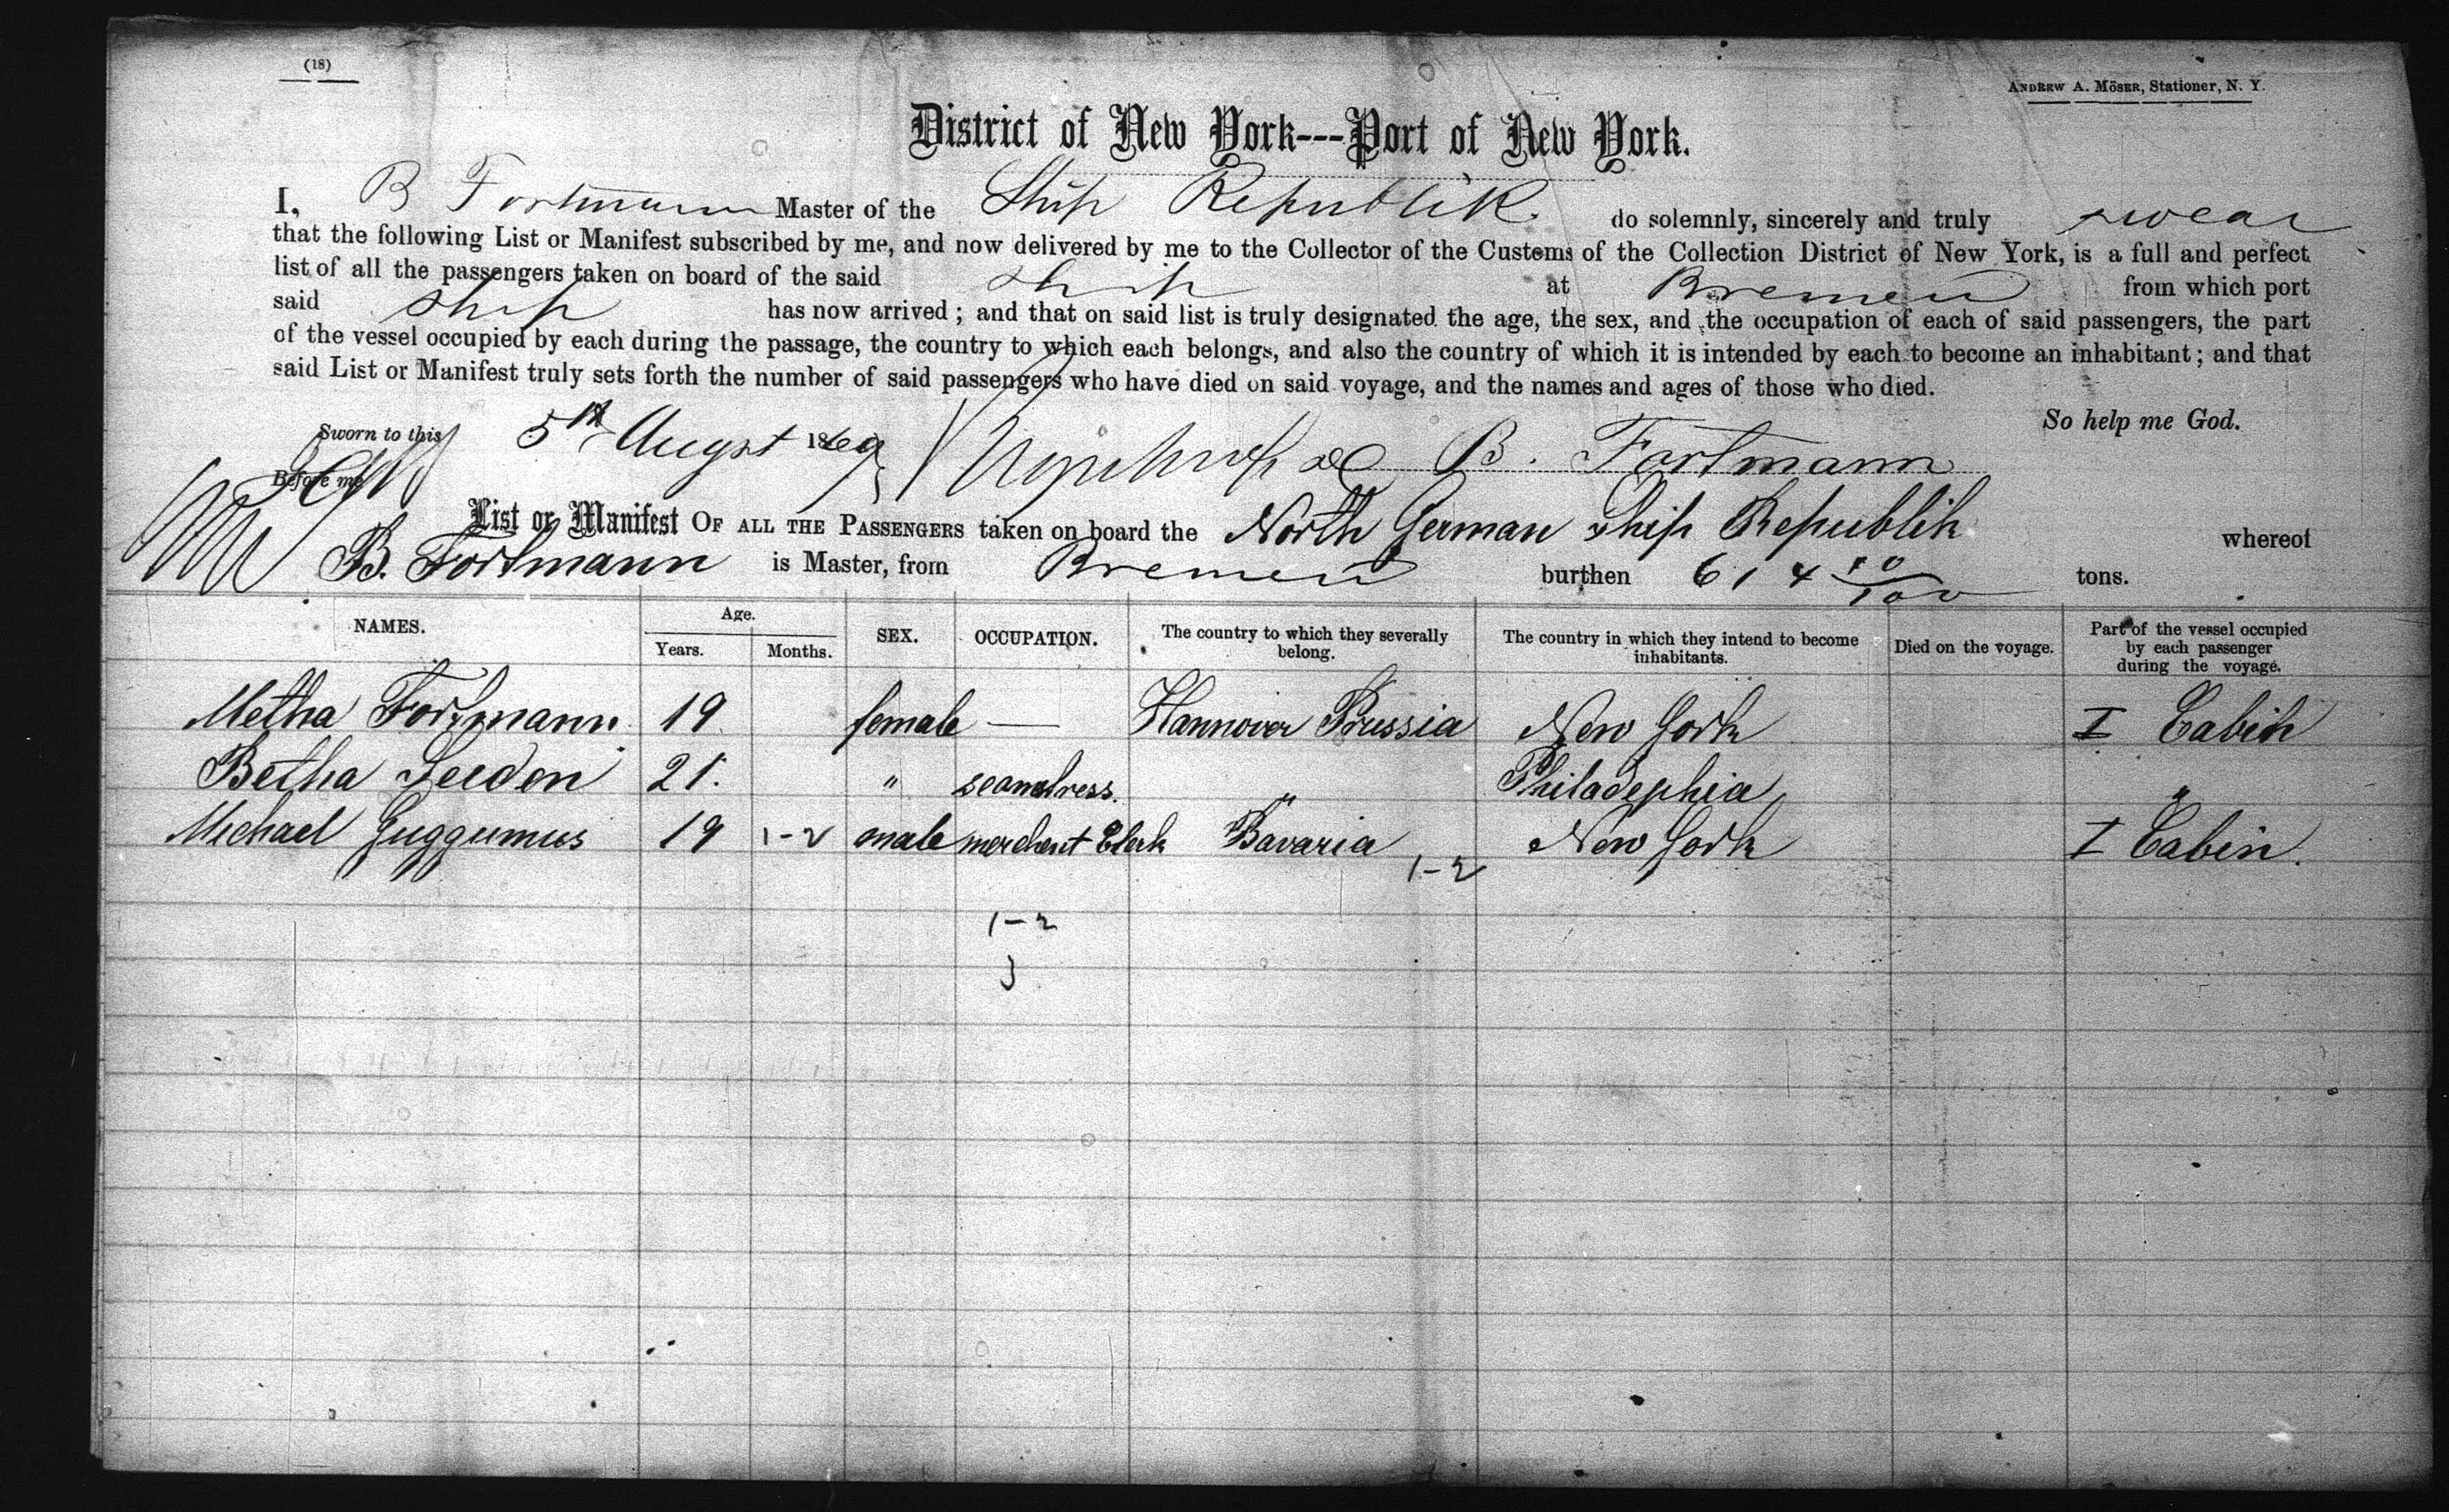 (18)
ANDREW A. MÖSER, Stationer, N. Y.
District of New York---Port of New York.
I, B Fortmann Master of the Ship Republik. do solemnly, sincerely and truly swear
that the following List or Manifest subscribed by me, and now delivered by me to the Collector of the Customs of the Collection District of New York, is a full and perfect
list of all the passengers taken on board of the said ship at Bremen from which port
said ship has now arrived; and that on said list is truly designated the age, the sex, and the occupation of each of said passengers, the part
of the vessel occupied by each during the passage, the country to which each belongs, and also the country of which it is intended by each to become an inhabitant; and that
said List or Manifest truly sets forth the number of said passengers who have died on said voyage, and the names and ages of those who died.
So help me God.
Sworn to this 5th Augst 1869 B. Fortmann
Before me
List or Manifest OF ALL THE PASSENGERS taken on board the North German Ship Republik whereof
B. Fortmann is Master, from Bremen burthen 614 /100 tons.
NAMES. Age. Years. Months. SEX. OCCUPATION. The country to which they severally belong. The country in which they intend to become inhabitants. Died on the voyage. Part of the vessel occupied by each passenger during the voyage.
Metha Fortmann 19 female — Hannover Prussia New York I Cabin
Betha Leeden 21. " seamdress. " Philadephia "
Michael Guggumus 19 1-2 male merchent Clerk Bavaria New York I Cabin.
1-2
1-2
3